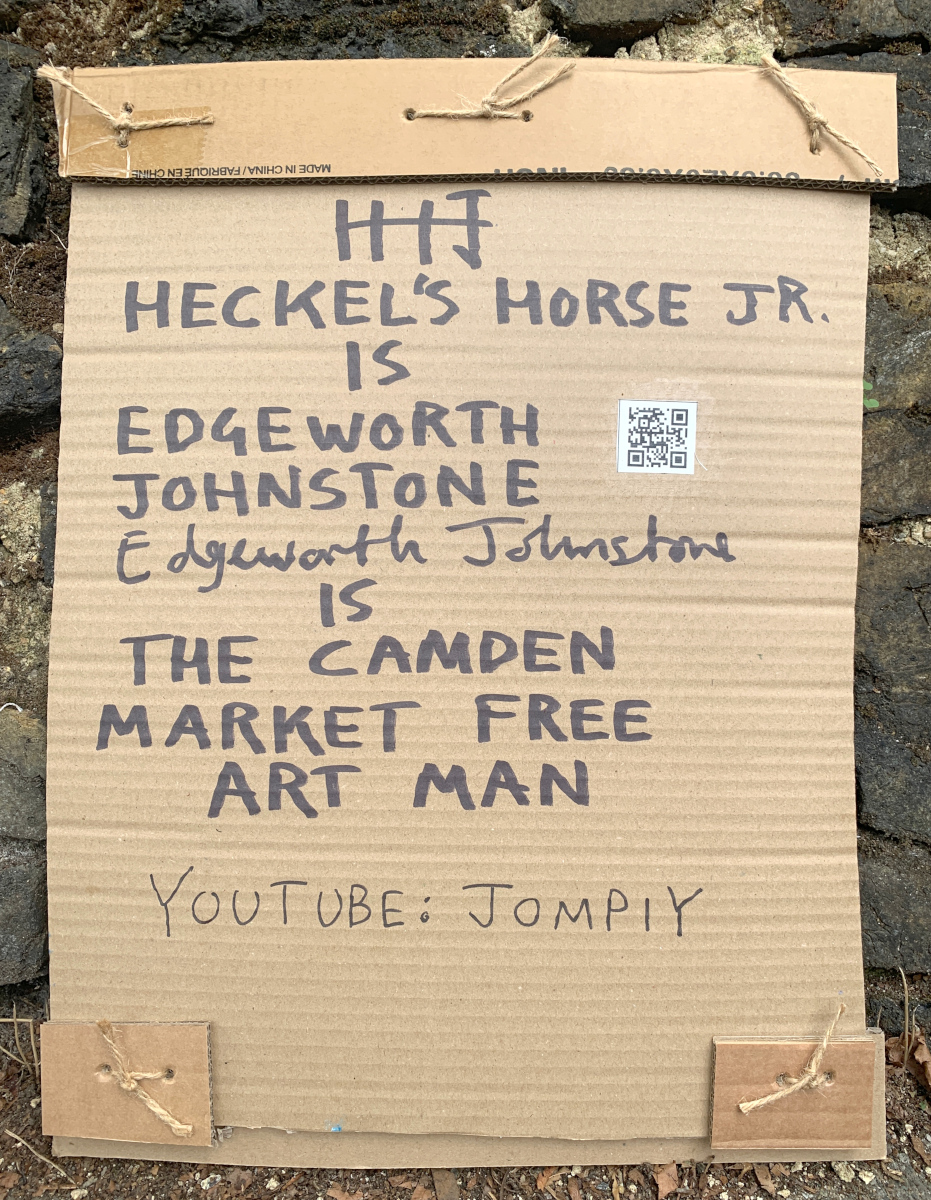 MADE IN CHINA / FABRIQUE EN CHINE
HHJ
HECKEL'S HORSE JR.
IS
EDGEWORTH
JOHNSTONE
Edgeworth Johnstone
IS
THE CAMDEN
MARKET FREE
ART MAN
YOUTUBE: JOMPIY